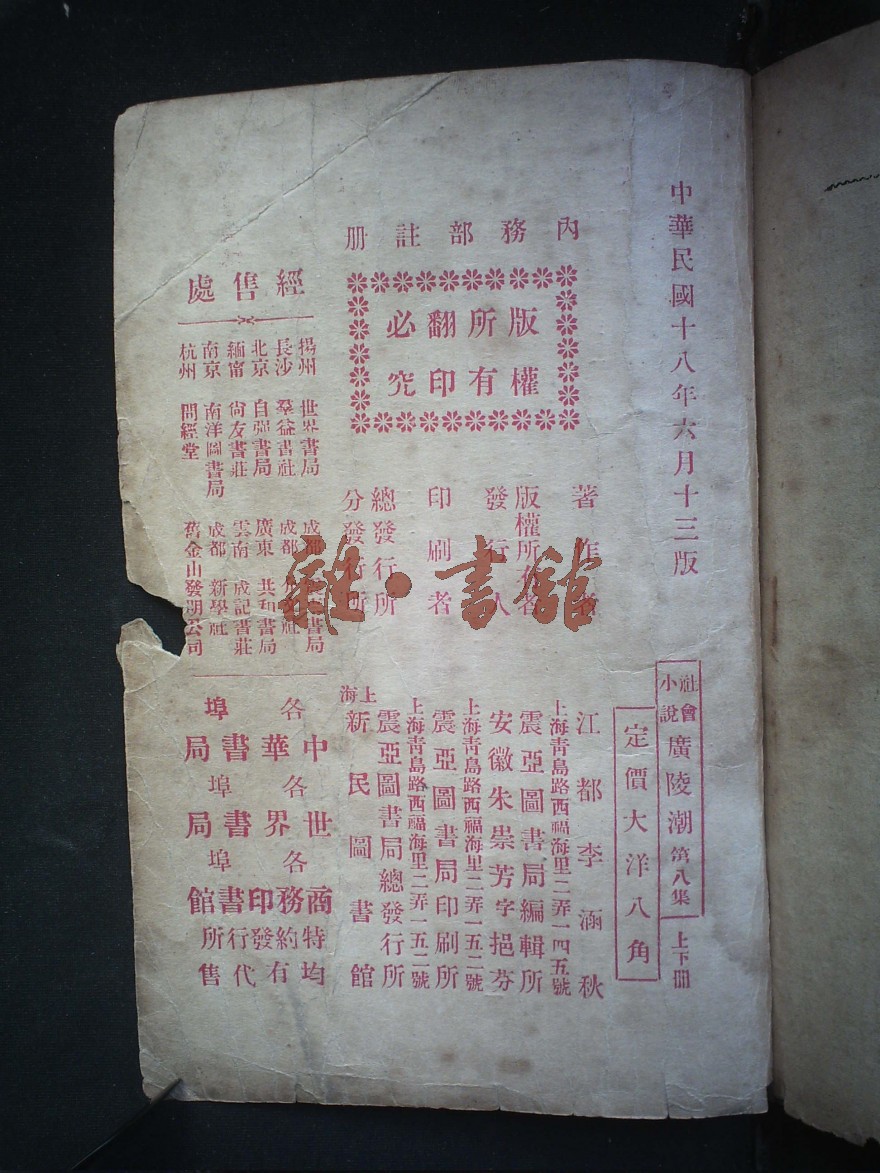 中華民國十八年六月十三版
社會小說 廣陵潮 第八集 上下冊
定價大洋八角
內務部註册
版權所有
翻印必究
著作者 江都李涵秋
版權所有者 上海靑島路西福海里二弄一四五號
震亞圖書局編輯所
發行人 安徽朱崇芳字挹芬
印刷者 上海靑島路西福海里二弄一五二號
震亞圖書局印刷所
總發行所 上海靑島路西福海里二弄一五二號
震亞圖書局總發行所
分發行所 上海新民圖書館
經售處
揚州 世界書局
長沙 羣益書社
北京 自强書局
緬甯 尙友書莊
南京 南洋圖書局
杭州 問經堂
成都 書局
成都 社
廣東 共和書局
雲南 成記書莊
成都 新學社
舊金山發明公司
各埠中華書局
各埠世界書局
各埠商務印書館
特約發行所
均有代售
雜·書館